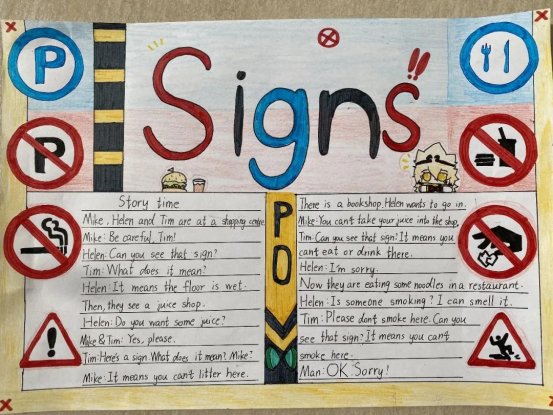 Signs!!
P
P
Story time
Mike, Helen and Tim are at a shopping centre
Mike: Be careful, Tim!
Helen: Can you see that sign?
Tim: What does it mean?
Helen: It means the floor is wet.
Then, they see a juice shop.
Helen: Do you want some juice?
Mike & Tim: Yes, please.
Tim: Here's a sign. What does it mean? Mike?
Mike: It means you can't litter here.
P
O
There is a bookshop. Helen wants to go in.
Mike: You can't take your juice into the shop.
Tim: Can you see that sign? It means you
can't eat or drink there.
Helen: I'm sorry.
Now they are eating some noodles in a restaurant.
Helen: Is someone smoking? I can smell it.
Tim: Please don't smoke here. Can you
see that sign? It means you can't
smoke here.
Man: OK. Sorry!